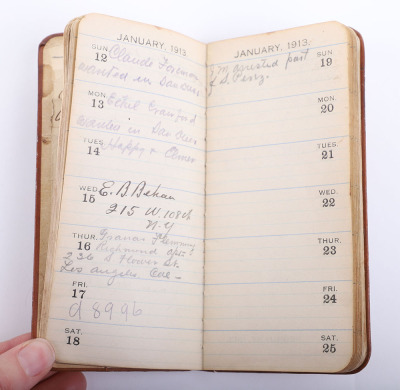 JANUARY, 1913.
SUN. 12 Claude Foreman
wanted in San
MON. 13 Ethel Crawford
Wanted in San
TUES. 14 Happy &
WED. 15 E. B. Behan
215 W 108th
N.Y
THUR. 16 Francis Flemming
Richmond Apts
236 S Flower St.
Los Angeles Cal -
FRI. 17 d 8996
SAT. 18
JANUARY, 1913.
SUN. 19 arrested past
MON. 20
TUES. 21
WED. 22
THUR. 23
FRI. 24
SAT. 25